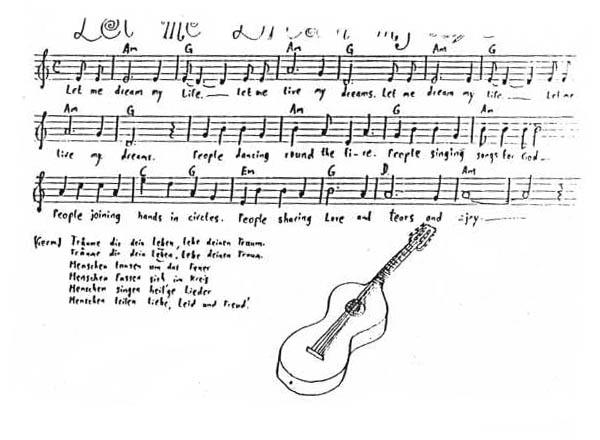 Let me Dream my
Am G Am G Am G
Let me dream my Life. let me live my dreams. Let me dream my life. Let me
Am G Am G Am
live my dreams. People dancing round the fi-re. People singing songs for God
C G Em G D Am
People joining hands in circles. People sharing Love and tears and joy.
(Germ) Träume dir dein leben, lebe deinen Traum.
Träume dir dein leben, lebe deinen Traum.
Menschen tanzen um das Feuer
Menschen fassen sich im Kreis
Menschen singen heil'ge Lieder
Menschen teilen Liebe, Leid und Freud!